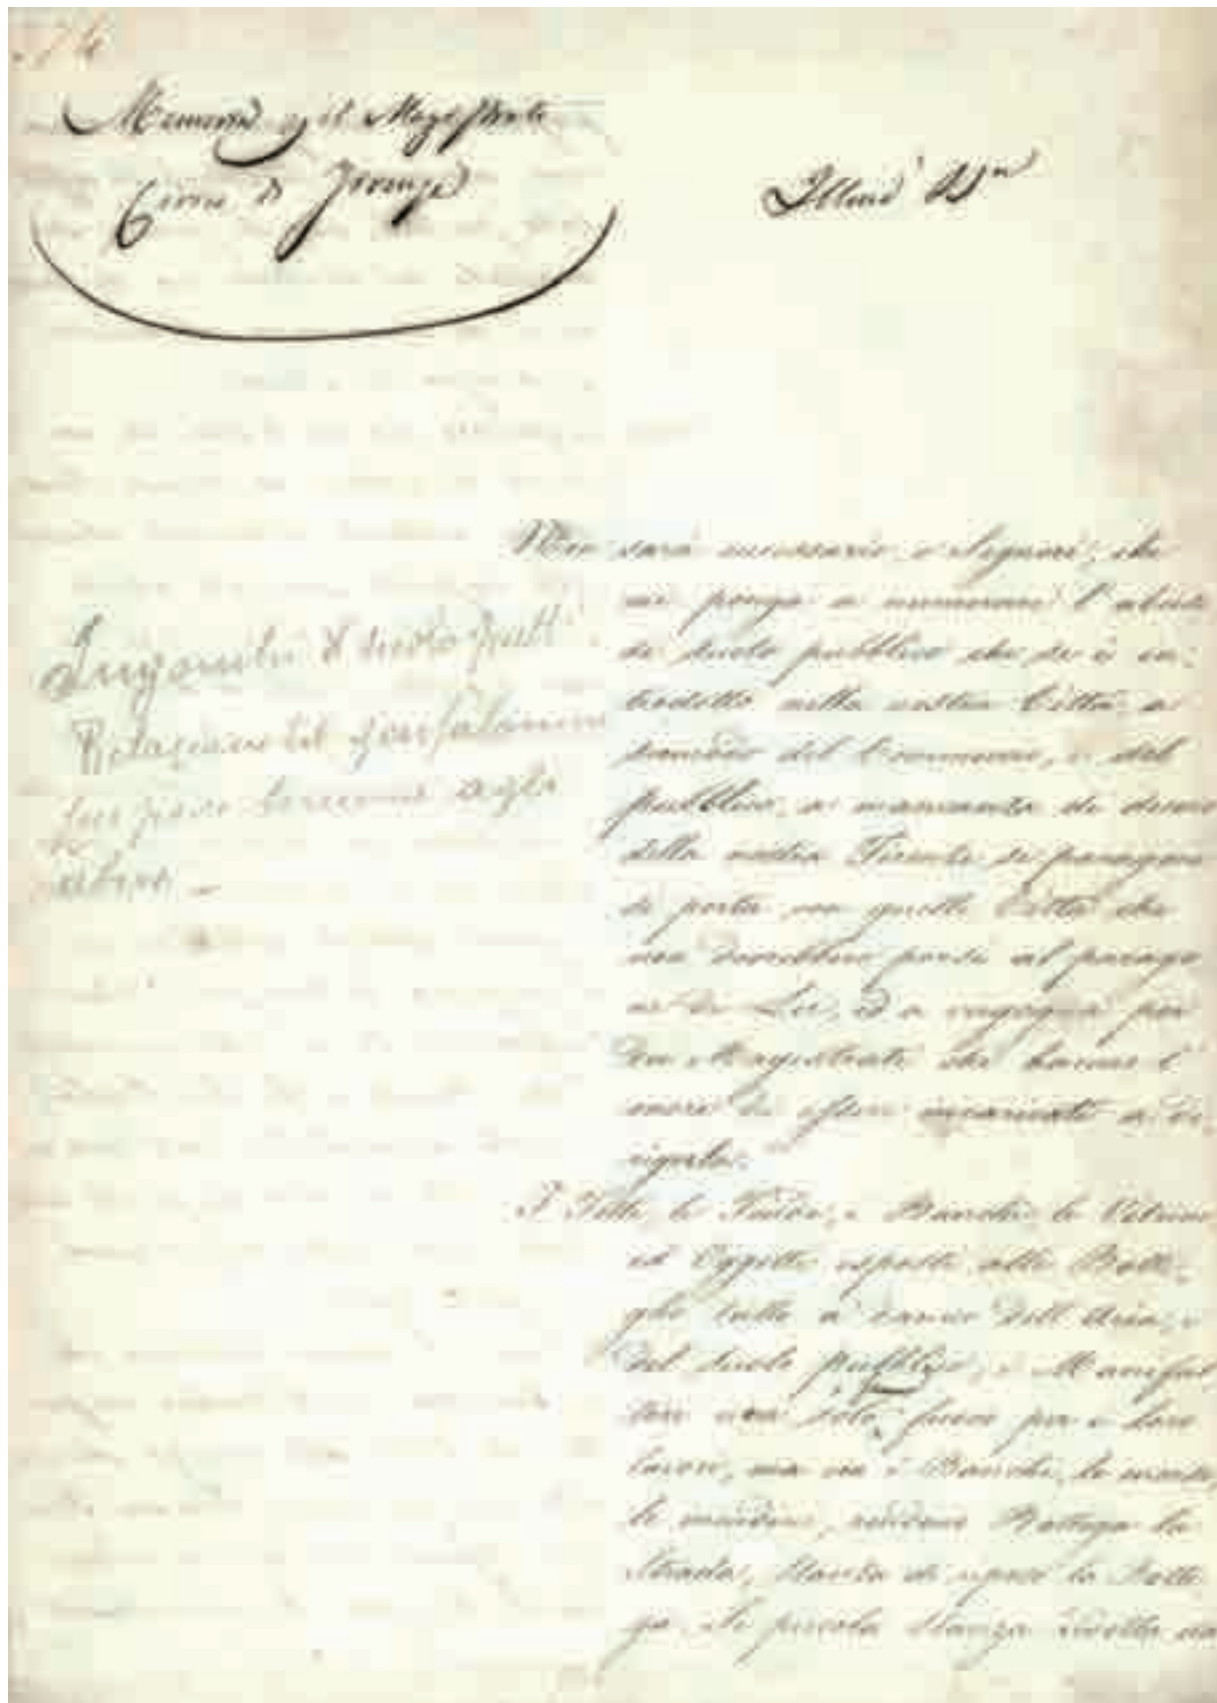 74
Memoria p il Magistrato
Civico di Firenze
Illmi Sigri
Ingombri di suolo pubb
Relazione del Gonfaloniere
per porre termine agli
abusi
Non sarà necessario, o Signori, che
mi ponga a enumerare l'abuso
di suolo pubblico che si è in-
trodotto nella nostra Città, a
del Commercio, e del
pubblico, a mancanza di decoro
della nostra Firenze se paragone
si porta con quelle Città che
non dovrebbero porsi al parago
ne di Lei, ed a vergogna per
dei Magistrati che hanno l'
onore di essere incaricati a di-
rigerla.
I Tetti, le Tende, i Banchi, le Vetrine
ed Oggetti esposti alle Botte-
ghe tutto a carico dell'Aria, e
del suolo pubblico; i Manifat
tori non solo fuori per i loro
lavori, ma con i Banchi, le
le rendono Bottega la
Strada, Stanza di riposo la Botte
ga. Se piccola Stanza